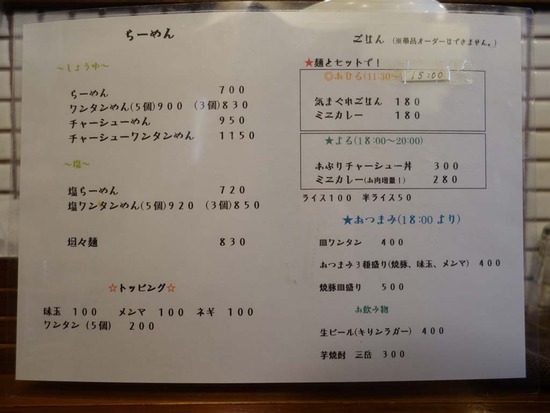 らーめん
～しょうゆ～
らーめん 700
ワンタンめん(5個)900 (3個)830
チャーシューめん 950
チャーシューワンタンめん 1150
～塩～
塩らーめん 720
塩ワンタンめん(5個)920 (3個)850
坦々麺 830
☆トッピング☆
味玉 100 メンマ 100 ネギ 100
ワンタン(5個) 200
ごはん (※単品オーダーはできません。)
★麺とセットで!
◎おひる(11:30～15:00
気まぐれごはん 180
ミニカレー 180
★よる(18:00～20:00)
あぶりチャーシュー丼 300
ミニカレー(お肉増量!) 280
ライス100 半ライス50
★おつまみ(18:00より)
皿ワンタン 400
おつまみ3種盛り(焼豚、味玉、メンマ) 400
焼豚皿盛り 500
お飲み物
生ビール(キリンラガー) 400
芋焼酎 三岳 300